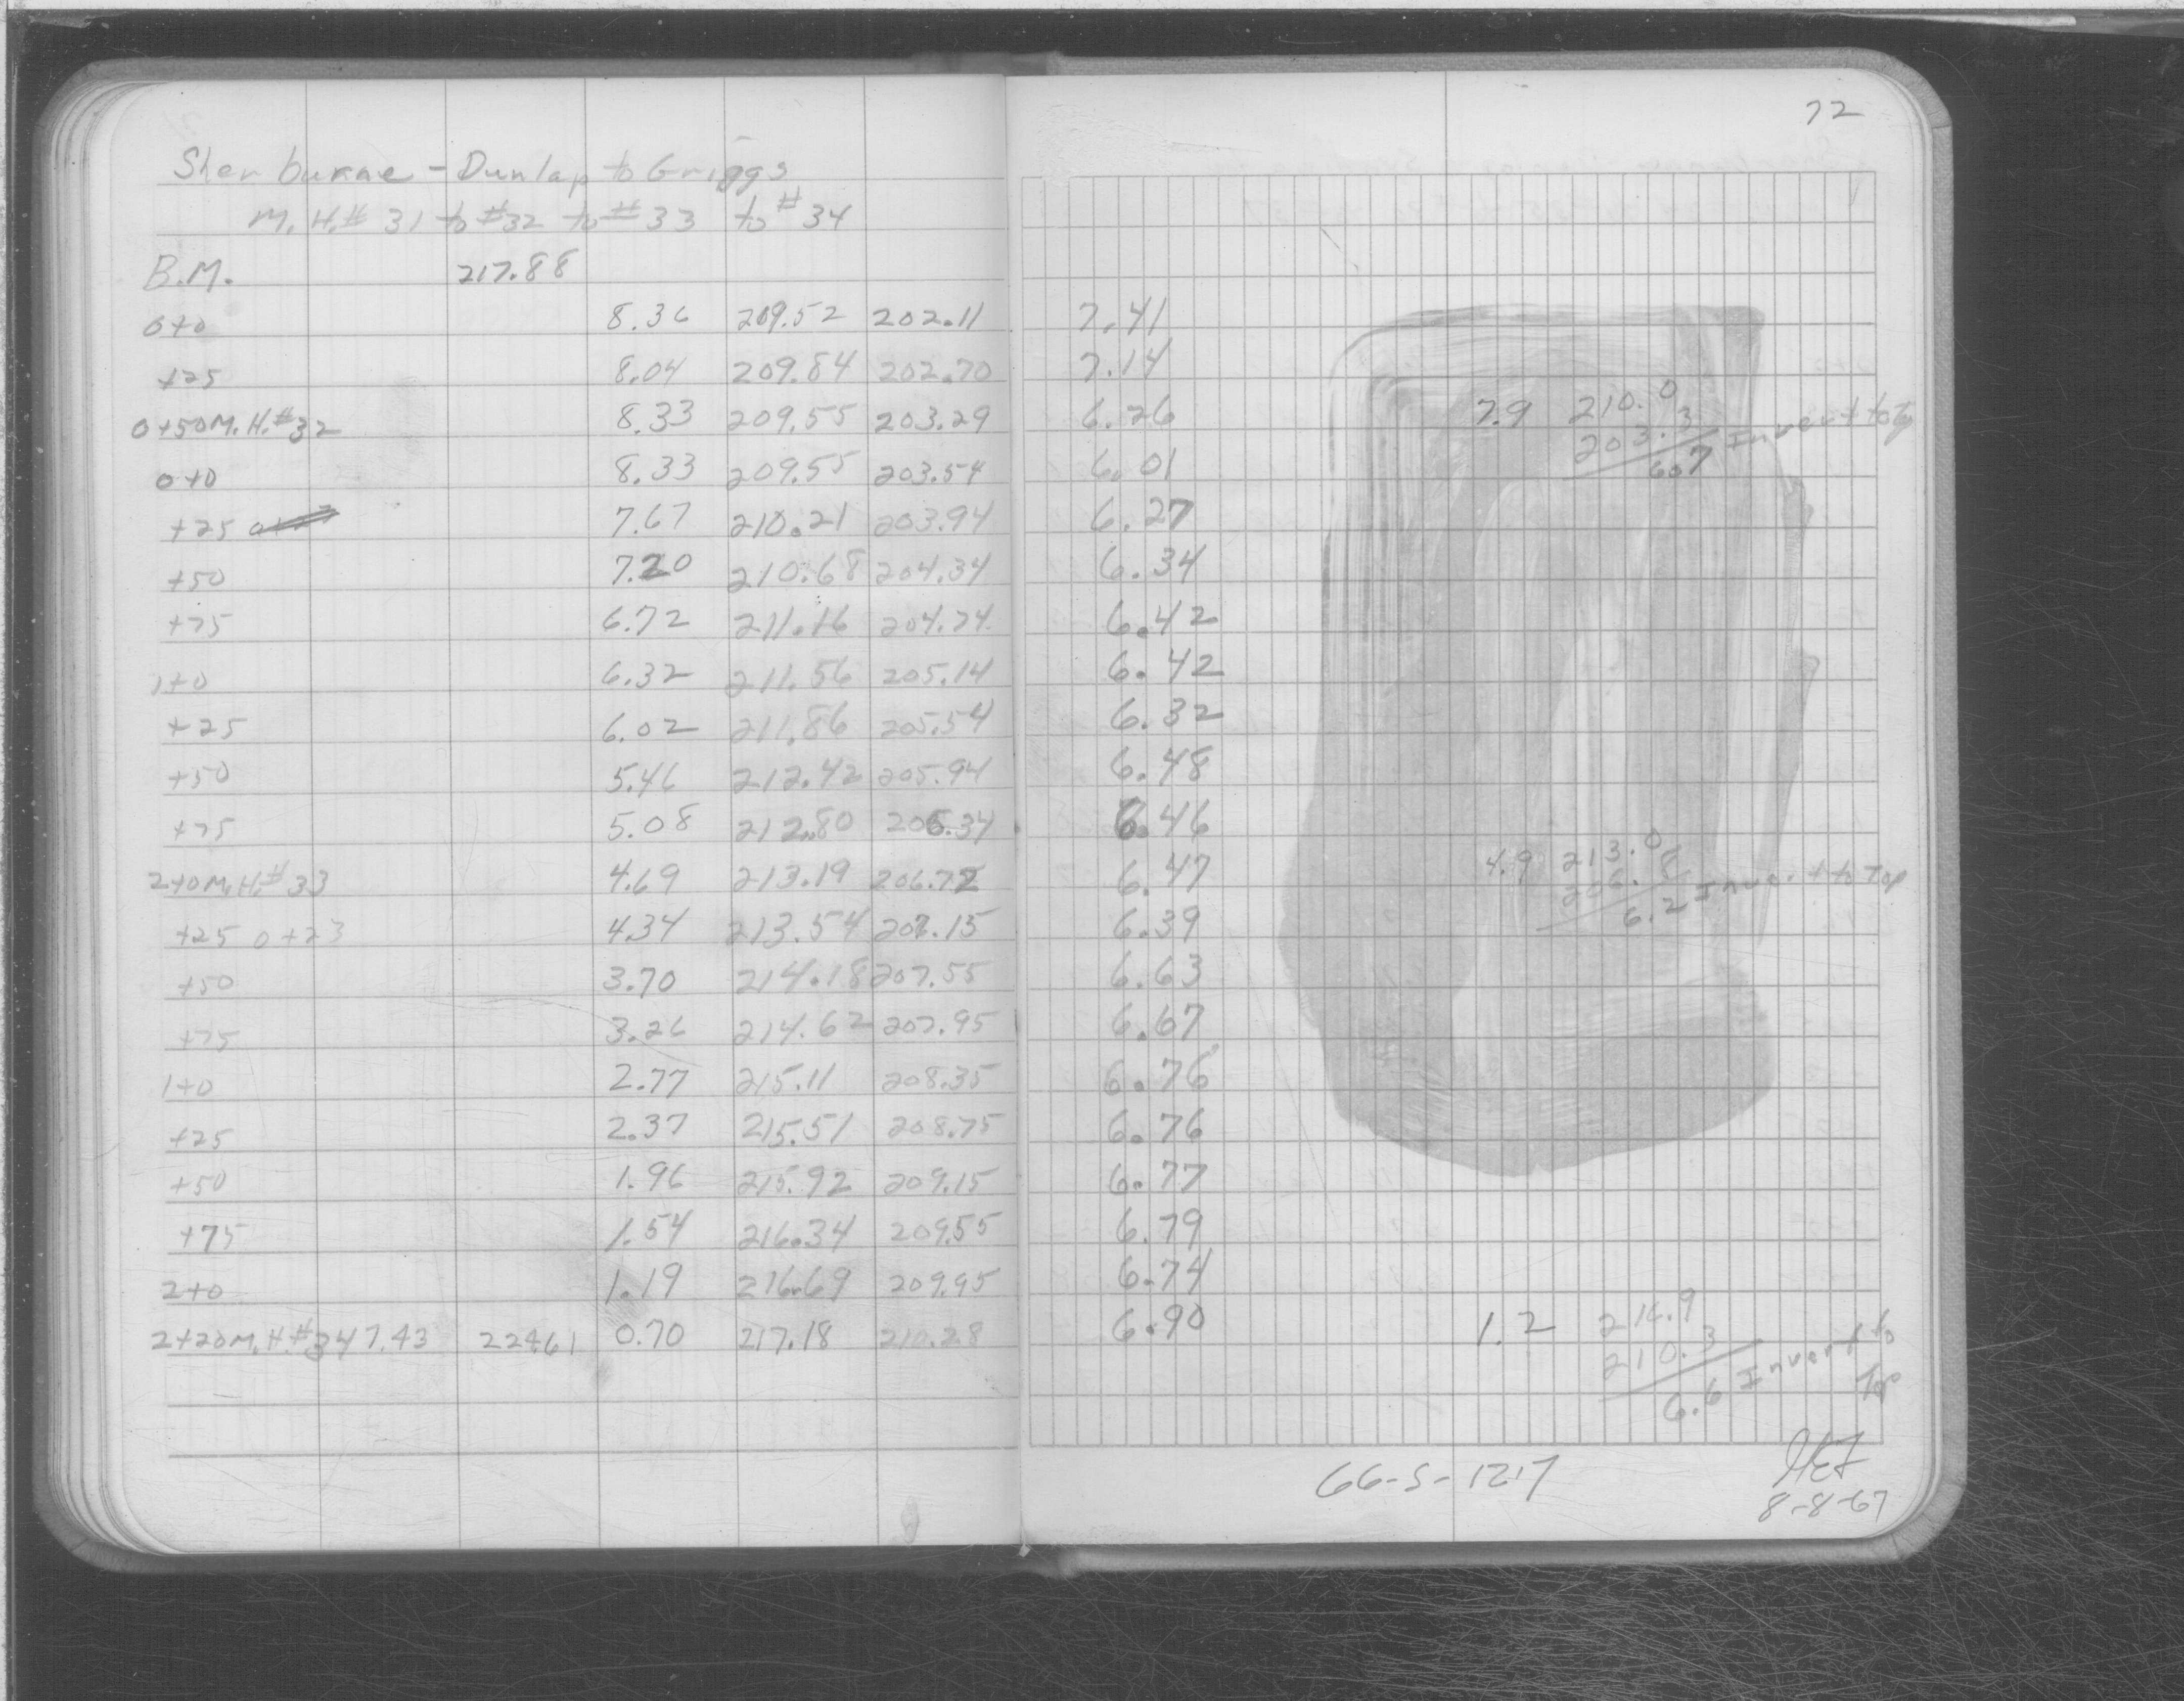 72
Sherburne - Dunlap to Griggs
M.H.# 31 to #32 to #33 to #34
B.M. 217.88
0+0 8.36 209.52 202.11 7.41
+25 8.04 209.84 202.70 7.14
0+50 M.H.#32 8.33 209.55 203.29 6.26 7.9 210.0
203.3 Invert to Top
6.7
0+0 8.33 209.55 203.54 6.01
+25 7.67 210.21 203.94 6.27
+50 7.20 210.68 204.34 6.34
+75 6.72 211.16 204.74 6.42
1+0 6.32 211.56 205.14 6.42
+25 6.02 211.86 205.54 6.32
+50 5.46 212.42 205.94 6.48
+75 5.08 212.80 206.34 6.46
2+0 M.H.#33 4.69 213.19 206.72 6.47 4.9 213.0
206.8 Invert to Top
6.2
+25 0+23 4.34 213.54 207.15 6.39
+50 3.70 214.18 207.55 6.63
+75 3.26 214.62 207.95 6.67
1+0 2.77 215.11 208.35 6.76
+25 2.37 215.51 208.75 6.76
+50 1.96 215.92 209.15 6.77
+75 1.54 216.34 209.55 6.79
2+0 1.19 216.69 209.95 6.74
2+20 M.H.#34 7.43 224.61 0.70 217.18 210.28 6.90 1.2 216.9
210.3
6.6 Invert to Top
66-S-1217
8-8-67